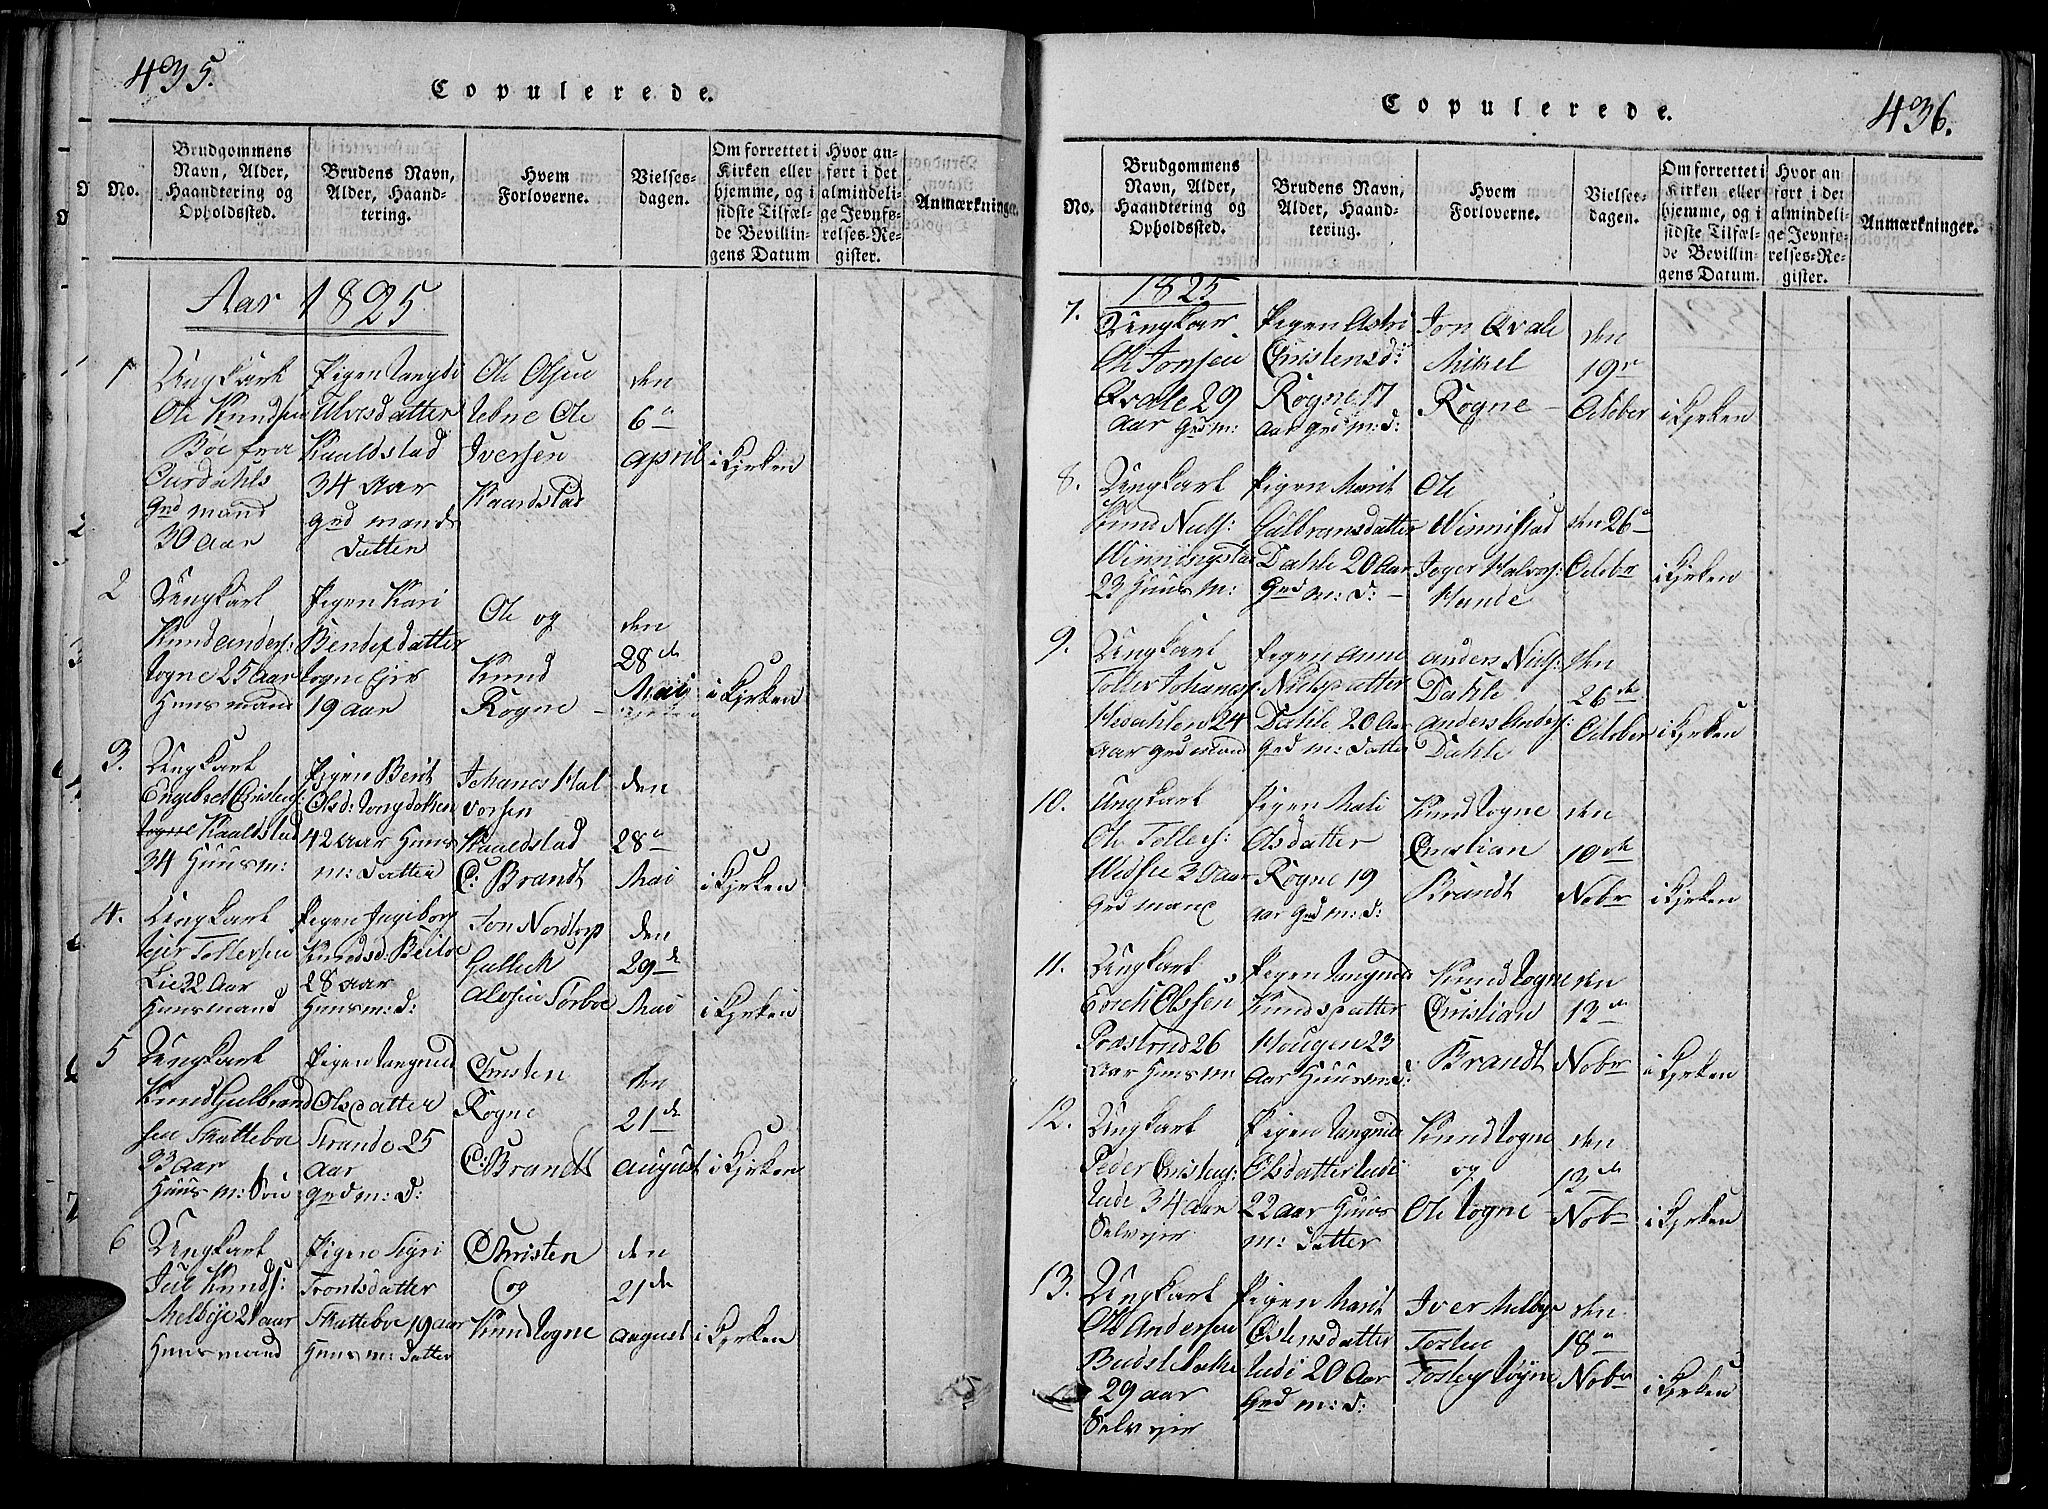 435.
Copulerede.
No.
Brudgommens Navn, Alder, Haandtering og Opholdssted.
Brudens Navn, Alder, Haandtering.
Hvem Forloverne.
Vielsesdagen.
Om forrettet i Kirken eller hjemme, og i sidste Tilfælde Bevillingens Datum
Hvor anført i det almindelige Jevnførelses-Register.
Anmærkninger.
Aar 1825.
1
Ungkarl
Ole Knudsen
Bøe fra
Aurdahls
Grd mand
30 Aar
Pigen
Ulvesdatter
Kaaldstad
34 Aar
Grd mands
Datter
Ole Olsen
Ole
Iversen
Kaardstad
den
6
April
i Kjrken
2
Ungkarl
Knud Anders:
Togne 25 Aar
Huusmand
Pigen Kari
Bendixdatter
Togne Ejer
19 Aar
Ole og
Knud
Rogne
den
28de
Mai
i Kjrken
3.
Ungkarl
Engebret Christens:
Kaaldstad
34 Huusm:
Pigen Berit
Olsd:
42 Aar Huus
m: Datter
Johanes Hal
vorsen
Kaaldstad
C: Brandt
den
28
Mai
i Kjrken
4.
Ungkarl
Ejer Tollersen
Lie 32 Aar
Huusmand
Pigen Ingeborg
Knudsd: Beitoe
28 Aar
Huusm: d:
Jon Nordtorp
Gulleck
Torboe
den
29de
Mai
i Kjrken
5
Ungkarl
Knud Gulbrand
sen Skatteboe
33 Aar
Huusm: Søn
Pigen Rangnild
Olsdatter
Strande 25
Aar
Grd m: D:
Christen
Rogne
C: Brandt
den
21de
August
i Kjrken
6
Ungkarl
Jul Knuds:
Melbye 21 Aar
Huusmand
Pigen Sigri
Trondsdatter
Skatteboe 19 Aar
Huusm: Datter
Christen
og
Knud Togne
den
21de
August
i Kjrken
436.
Copulerede.
No.
Brudgommens Navn, Alder, Haandtering og Opholdssted.
Brudens Navn, Alder, Haandtering.
Hvem Forloverne.
Vielsesdagen.
Om forrettet i Kirken eller hjemme, og i sidste Tilfælde Bevillingens Datum.
Hvor anført i det almindelige Jevnførelses-Register.
Anmærkninger.
1825
7.
Ungkar
Ole Jonsen
Qvale 29
Aar Grd m:
Pigen Astri
Christensd:
Rogne 17
Aar Grd m: d:
Jon Qvale
Mikel
Rogne
den
19
October
i Kjrken
8.
Ungkarl
Knud Niels:
Winningstad
23 Huus m:
Pigen Marit
Gulbransdatter
Dahle 20 Aar
Grd m: D:
Ole
Winnistad
Halvors:
Hande
den 26
Octobr
i Kjrken
9.
Ungkarl
Toller Johanes:
24
Aar Grd mand
Pigen Anne
Nielsdatter
Dahle 20 Aar
Grd m: Datter
Anders Niels:
Dahle
Anders Anders:
Dahle
den
26de
October
i Kjrken
10.
Ungkarl
Ole Tollers:
30 Aar
Grd mand
Pigen Mali
Olsdatter
Rogne 19
Aar Grd m: d:
Knud Togne
Christian
Brandt
den
10de
Nobr
i Kjrken
11.
Ungkarl
Erich Olssen
Præstrud 26
Aar Huus m
Pigen Rangnild
Knudsdatter
Hougen 23
Aar Huus m: d:
Knud Togne
Christian
Brandt
den
12de
Nobr
i Kjrken
12.
Ungkarl
Peder Christens:
34 Aar
Selvejer
Pigen Rangnild
Olsdatter
22 Aar Huus
m: Datter
Knud Togne
og
Ole Togne
den
13de
Nobr
i Kjrken
13.
Ungkarl
Ole Andersen
29 Aar
Selvejer
Pigen Marit
Østensdatter
20 Aar
Grd m: d:
Iver Melbye
den
18
Nobr
i Kjrken